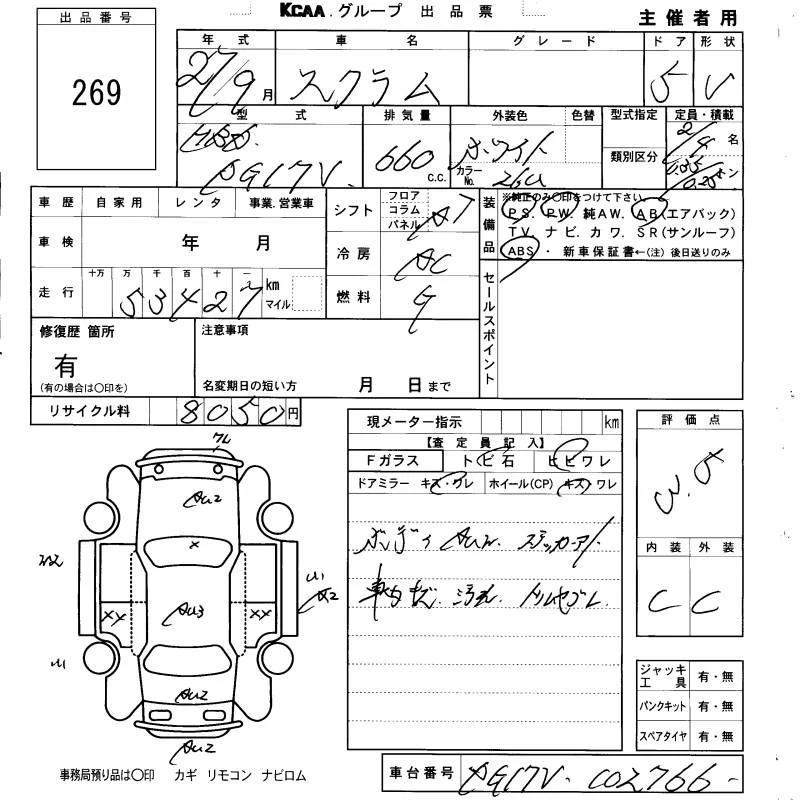 KCAA.グループ 出品票
主催者用
出品番号
269
年式 車名 グレード ドア 形状
27/9月 スクラム 5 V
型式 排気量 外装色 色替 型式指定 定員・積載
660 c.c. ホワイト カラーNo. 26U 類別区分 2/4名
DG17V
車歴 自家用 レンタ 事業.営業車
シフト フロア コラム パネル AT
装備品 ※純正のみ○印をつけて下さい。
PS. PW. 純AW. AB(エアバック)
TV. ナビ. カワ. SR(サンルーフ)
ABS ・ 新車保証書←(注)後日送りのみ
車検 年 月
冷房 AC
走行 十万 万 千 百 十 一 km マイル
53427
燃料 G
セールスポイント
修復歴 箇所
有
(有の場合は○印を)
注意事項
名変期日の短い方 月 日まで
リサイクル料 8050円
現メーター指示 km
【査定員記入】
Fガラス トビ石 ヒビワレ
ドアミラー キズ・ワレ ホイール(CP) キズ・ワレ
ボディ AU2. ステッカーアト
車内 汚れ.
評価点
3.5
内装 外装
C C
ワレ
AU2
×
AU3
××
××
AU2
AU2
ジャッキ工具 有・無
パンクキット 有・無
スペアタイヤ 有・無
事務局預り品は○印 カギ リモコン ナビロム
車台番号 DG17V-002766-